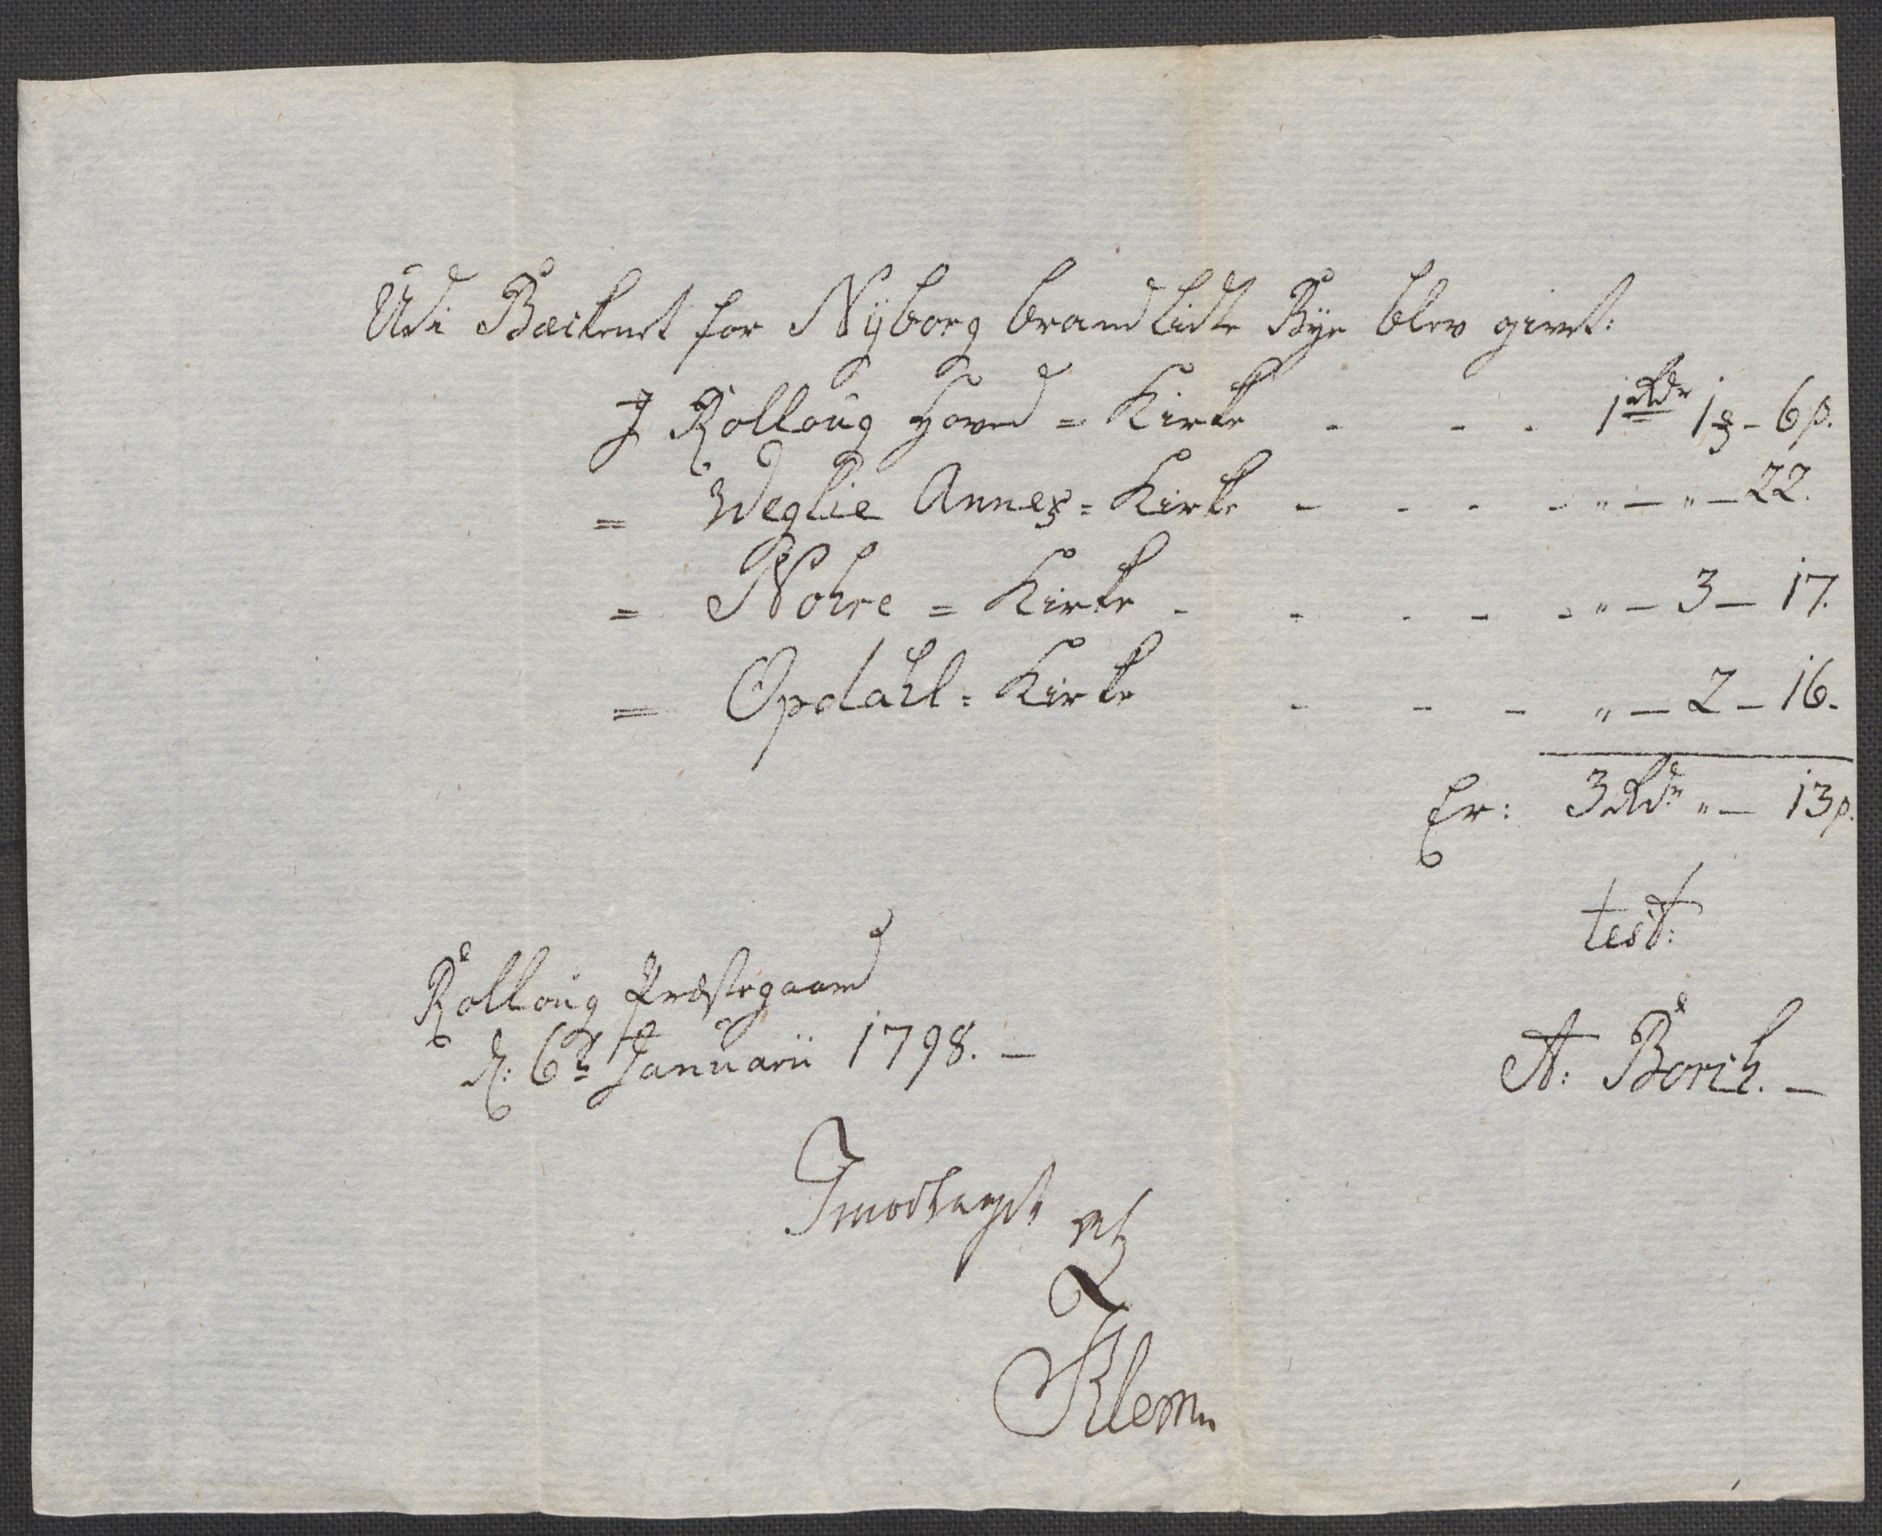 Udi Bæckenet for Nÿborg brandlidte Bÿe blev givet:
J Rolloug Hoved = Kirke - - - 1 Rdr 1 ȝ - 6 β.
= Weglie Annex = Kirke - - - - " — " — 22.
= Nohre = Kirke - - - - - " — 3 — 17.
= Opdahl = Kirke - - - " — 2 — 16.
Er: 3 Rdr " — 13 β.
test:
Rolloug Præstegaard
d: 6te Januarii 1798. —
A: Borch. —
Imodtaget
Klem